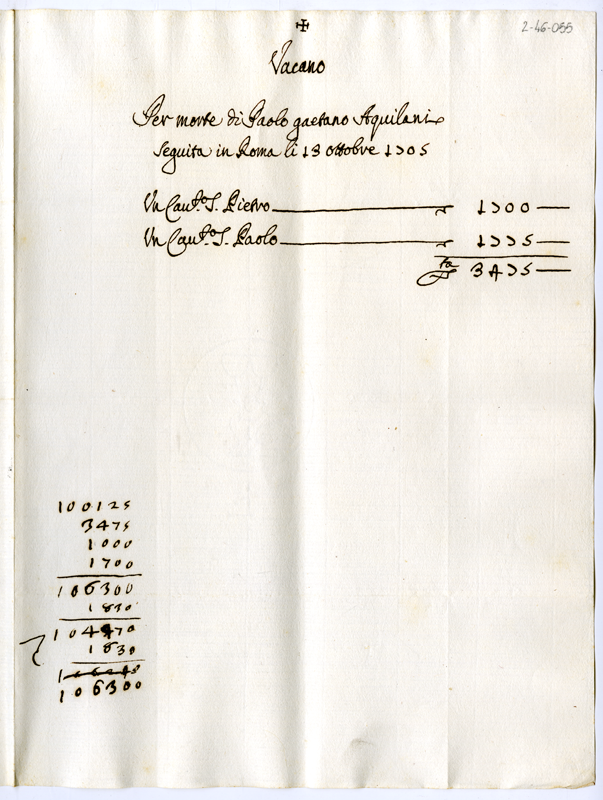 ✠
2-46-055
Vacano
Per morte di Paolo gaetano Aquilani
seguita in Roma li 13 ottobre 1705
Un Cau.to S. Pietro 1700
Un Cau.to S. Paolo 1775
3475
100125
3475
1000
1700
106300
1830
104470
1830
106300